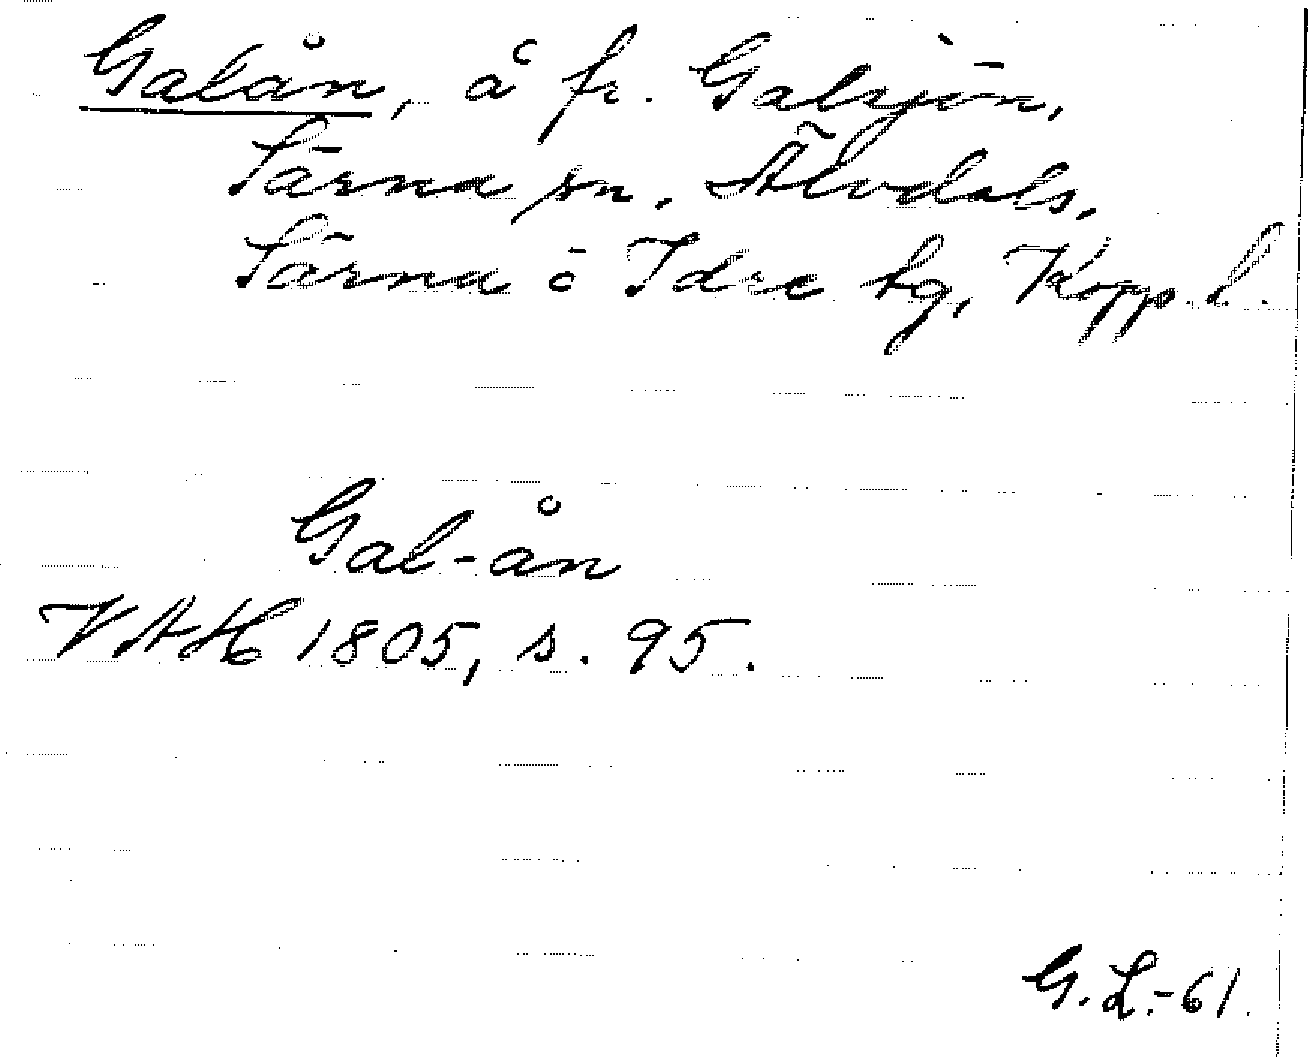 Galån, å fr. Galsjön,
Särna sn. Älvdals,
Särna o Idre tg, Kopp. l.
Gal-ån
VAH 1805, s. 95.
G. L. -61.